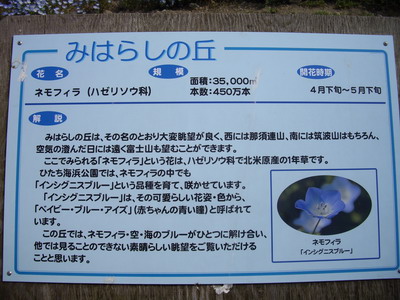 みはらしの丘
花名 規模 開花時期
ネモフィラ（ハゼリソウ科） 面積：35,000㎡ 4月下旬～5月下旬
本数：450万本
解説
みはらしの丘は、その名のとおり大変眺望が良く、西には那須連山、南には筑波山はもちろん、
空気の澄んだ日には遠く富士山も望むことができます。
ここでみられる「ネモフィラ」という花は、ハゼリソウ科で北米原産の1年草です。
ひたち海浜公園では、ネモフィラの中でも
「インシグニスブルー」という品種を育て、咲かせています。
「インシグニスブルー」は、その可愛らしい花姿・色から、
「ベイビー・ブルー・アイズ」（赤ちゃんの青い瞳）と呼ばれて
います。
この丘では、ネモフィラ・空・海のブルーがひとつに解け合い、
他では見ることのできない素晴らしい眺望をご覧いただける
ことと思います。
ネモフィラ
「インシグニスブルー」